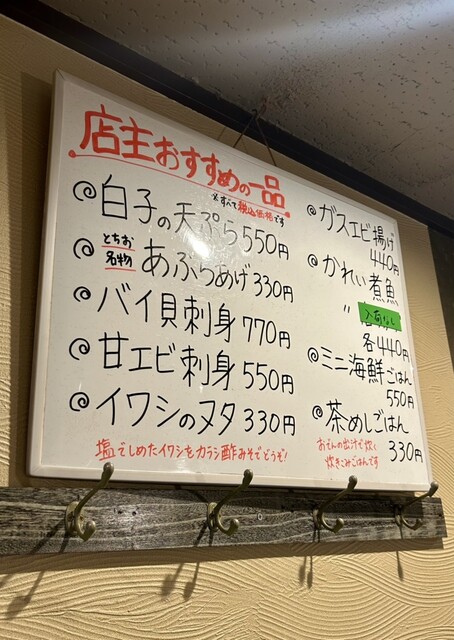 店主おすすめの一品
※すべて税込価格です
白子の天ぷら 550円
とちお名物 あぶらあげ 330円
バイ貝刺身 770円
甘エビ刺身 550円
イワシのヌタ 330円
塩でしめたイワシをカラシ酢みそでどうぞ!
ガスエビ揚げ
440円
かれい煮魚
〃
入荷なし
各440円
ミニ海鮮ごはん
550円
茶めしごはん
330円
おでんの出汁で炊く
炊きこみごはんです